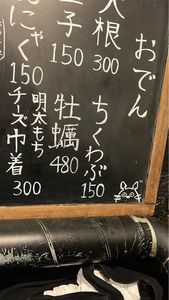 おでん
大根
300
ちくわぶ
150
玉子
150
牡蠣
480
にゃく
150
明太もち
チーズ巾着
300